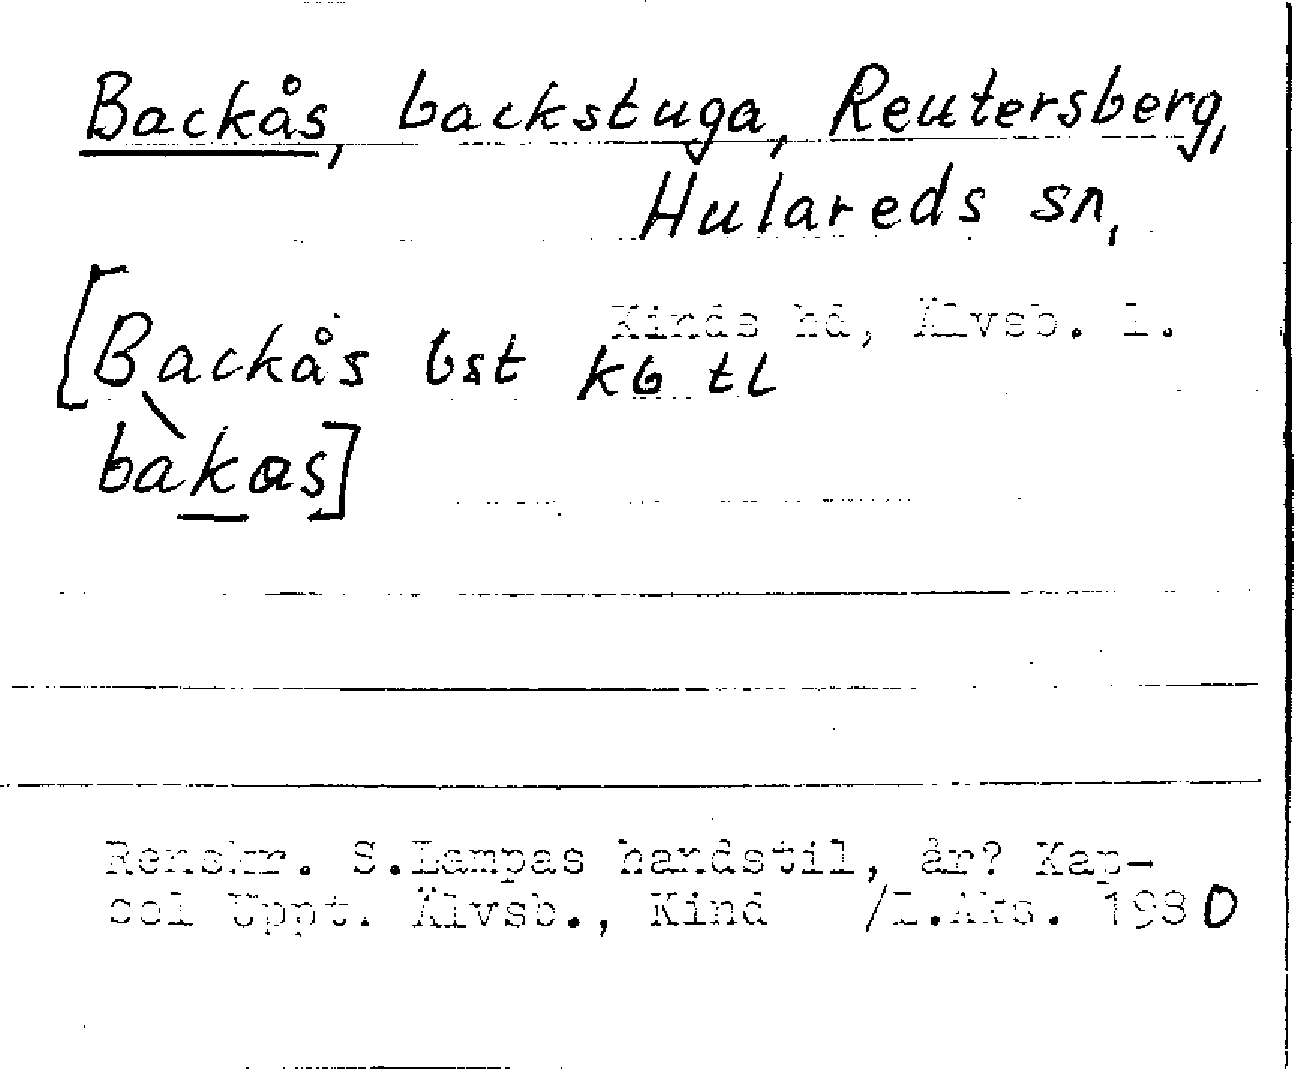 Backås, backstuga, Reutersberg,
Hulareds sn,
Kinds hd, Älvsb. l.
[Backås bst kb tl
bàkas]
Renskr. S.Lampas handstil, år? Kap-
sel Uppt. Älvsb., Kind /L.Aks. 1980